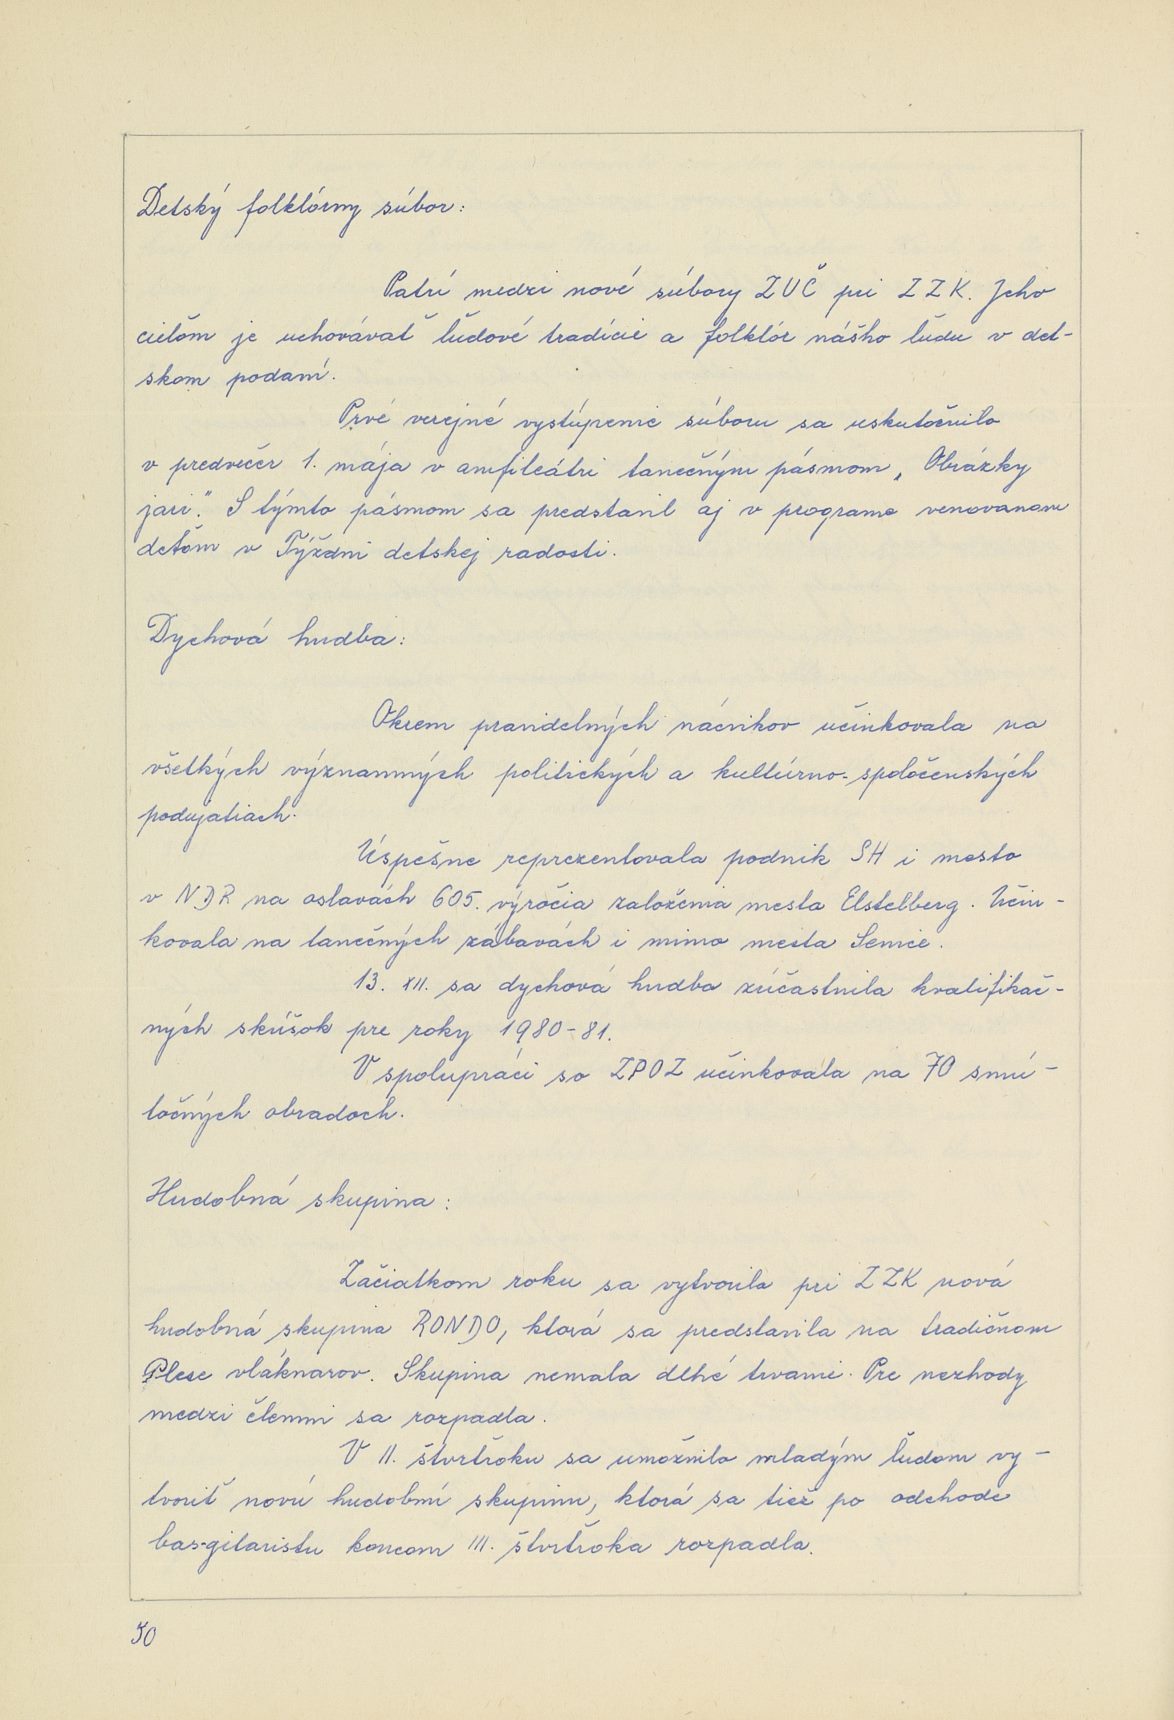 Detský folklórny súbor:
Patrí medzi nové súbory ZUČ pri ZZK. Jeho
cieľom je uchovávať ľudové tradície a folklór nášho ľudu v det-
skom podaní.
Prvé verejné vystúpenie súboru sa uskutočnilo
v predvečer 1. mája v amfiteátri tanečným pásmom „Obrázky
jari." S týmto pásmom sa predstavil aj v programe venovanom
deťom v Týždni detskej radosti.
Dychová hudba:
Okrem pravidelných nácvikov učinkovala na
všetkých významných politických a kultúrno-spoločenských
podujatiach.
Úspešne reprezentovala podnik SH i mesto
v NDR na oslavách 605. výročia založenia mesta Elstelberg. Účin-
kovala na tanečných zábavách i mimo mesta Senice.
13. XII. sa dychová hudba zúčastnila kvalifikač-
ných skúšok pre roky 1980-81.
V spolupráci so ZPOZ učinkovala na 70 smú-
točných obradoch.
Hudobná skupina:
Začiatkom roku sa vytvorila pri ZZK nová
hudobná skupina RONDO, ktorá sa predstavila na tradičnom
Plese vláknarov. Skupina nemala dlhé trvanie. Pre nezhody
medzi členmi sa rozpadla.
V II. štvrťroku sa umožnilo mladým ľuďom vy-
tvoriť novú hudobnú skupinu, ktorá sa tiež po odchode
bas-gitaristu koncom III. štvrťroka rozpadla.
50